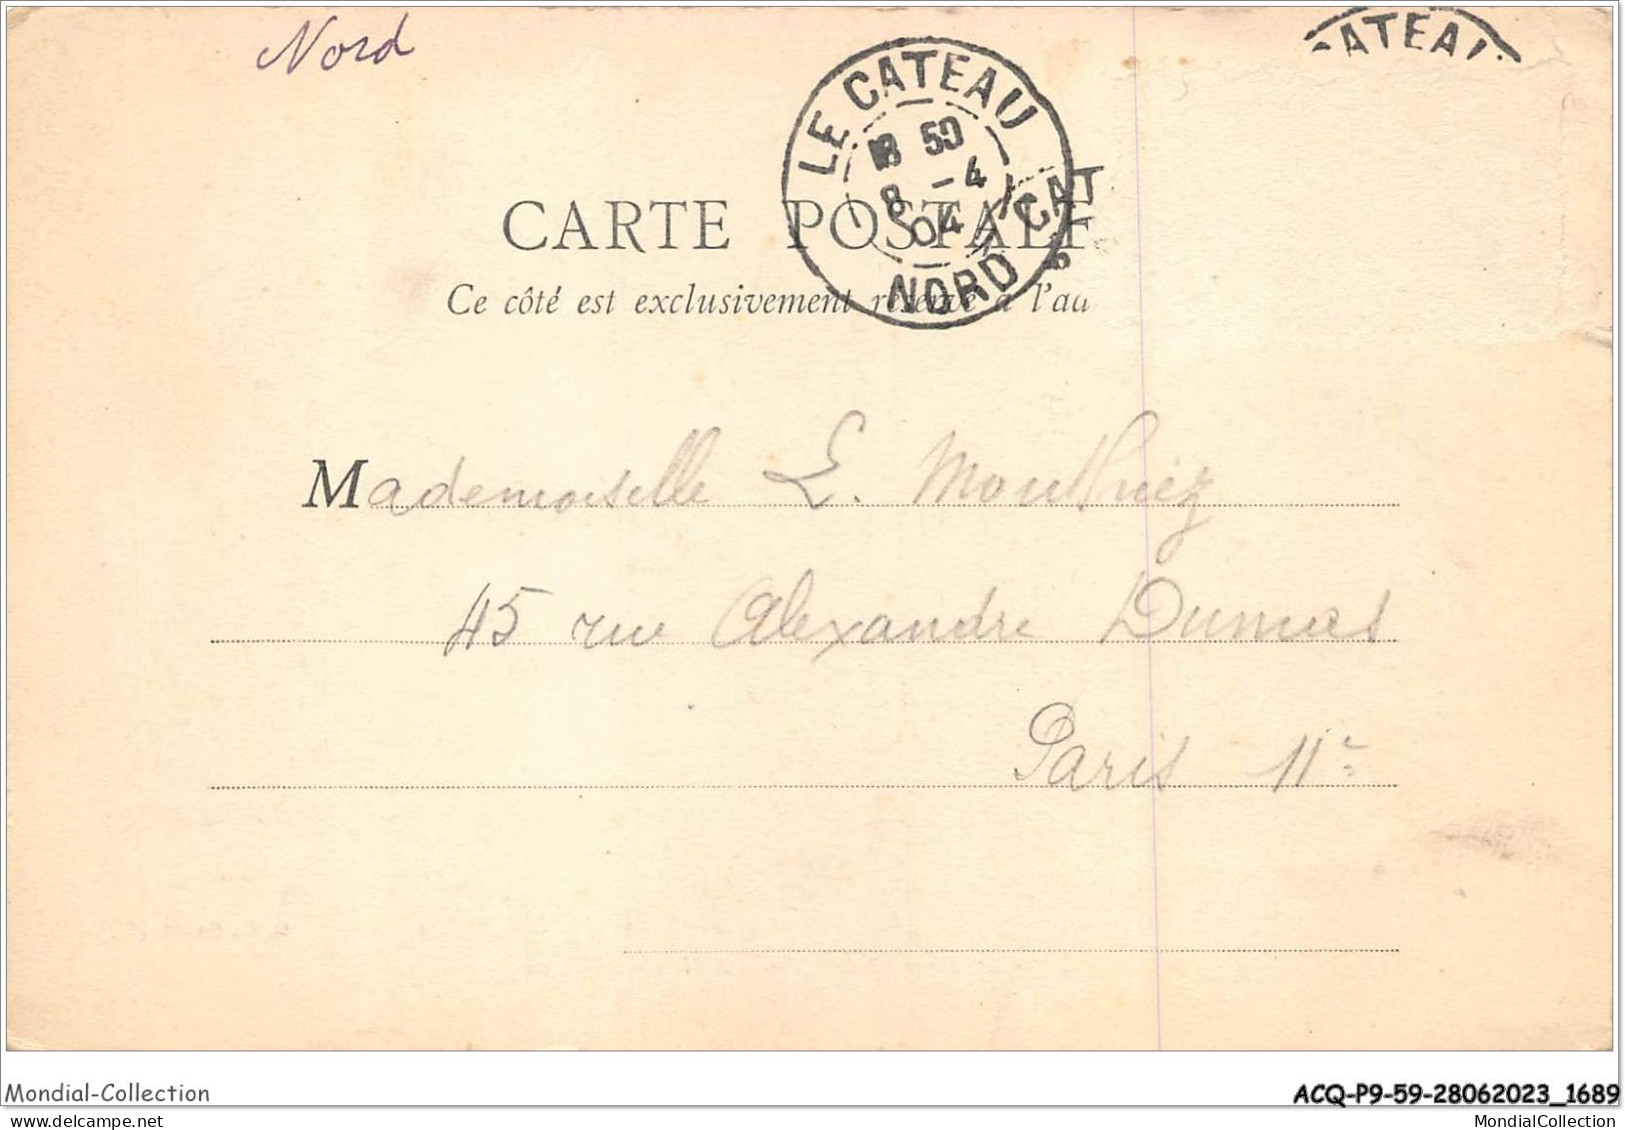 Nord
CATEAU
LE CATEAU
18 50
8 - 4
04
NORD
CAT
CARTE POSTALE
Ce côté est exclusivement réservé à l'ad
Mademoiselle L.
45 rue Alexandre Dumas
Paris 11e
Mondial-Collection
ACQ-P9-59-28062023_1689
MondialCollection
MondialCollection